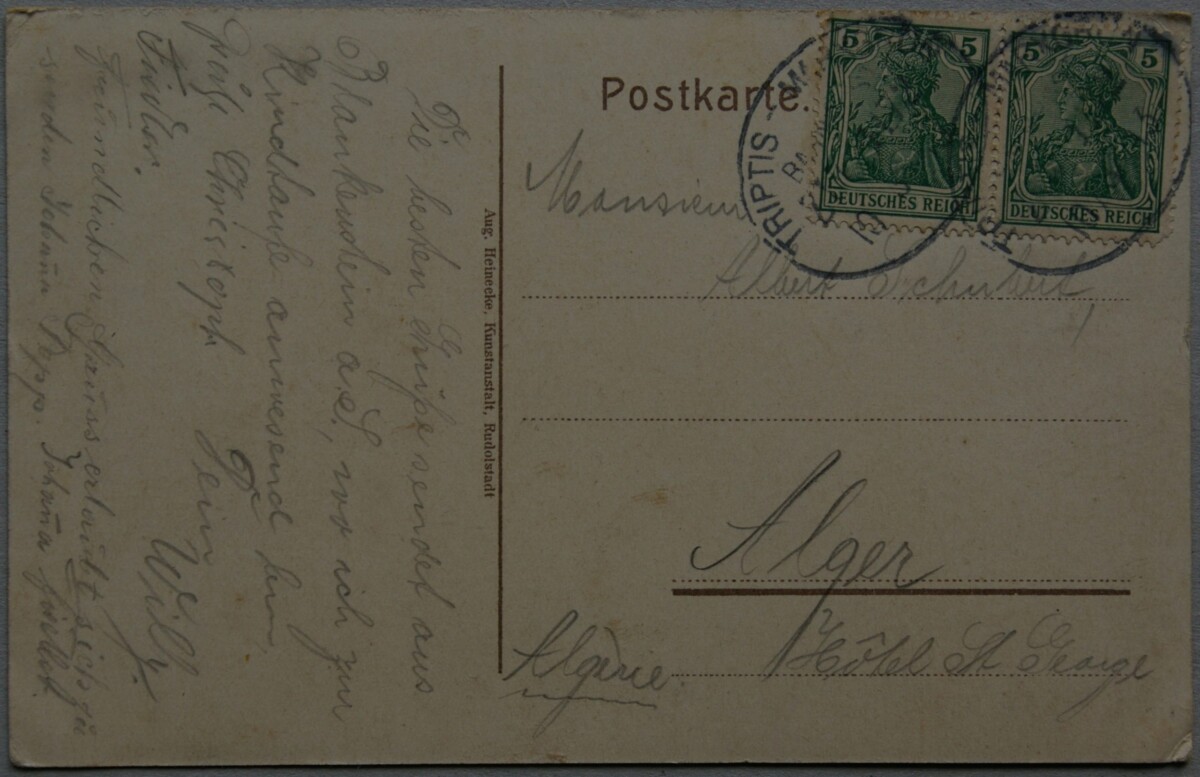 Postkarte.
5 5
DEUTSCHES REICH
5 5
DEUTSCHES REICH
TRIPTIS
Monsieur
Albert Schubert,
Alger
Hôtel St George
Algérie.
Aug. Heinecke, Kunstanstalt, Rudolstadt
Die besten Grüße sendet aus
Blankenstein a. S., wo ich zur
Kindtaufe anwesend bin,
Grüße Christoph
Dein
Willy.
Freundlichen Gruss erlaubt sich zu
senden Johanna